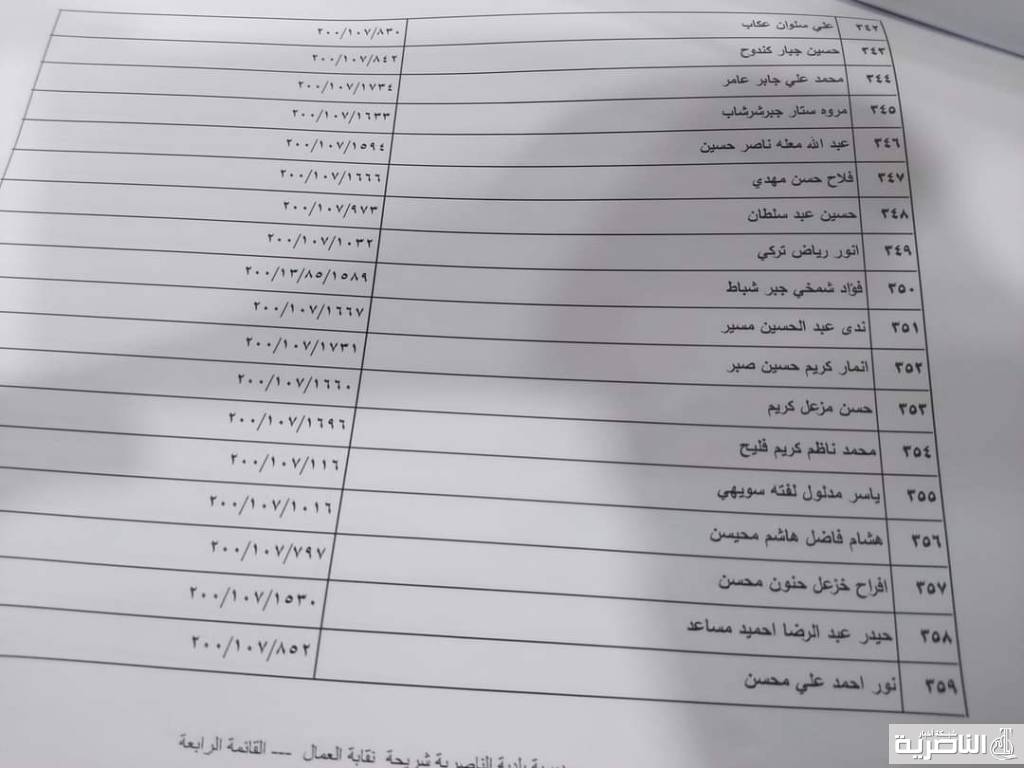 ٣٤٢ علي سلوان عكاب ٢٠٠/١٠٧/٨٣٠
٣٤٣ حسين جبار كندوح ٢٠٠/١٠٧/٨٤٢
٣٤٤ محمد علي جابر عامر ٢٠٠/١٠٧/١٧٣٤
٣٤٥ مروه ستار جبرشرشاب ٢٠٠/١٠٧/١٦٣٣
٣٤٦ عبد الله معله ناصر حسين ٢٠٠/١٠٧/١٥٩٤
٣٤٧ فلاح حسن مهدي ٢٠٠/١٠٧/١٦٦٦
٣٤٨ حسين عبد سلطان ٢٠٠/١٠٧/٩٧٣
٣٤٩ انور رياض تركي ٢٠٠/١٠٧/١٠٣٢
٣٥٠ فؤاد شمخي جبر شباط ٢٠٠/١٣/٨٥/١٥٨٩
٣٥١ ندى عبد الحسين مسير ٢٠٠/١٠٧/١٦٦٧
٣٥٢ انمار كريم حسين صبر ٢٠٠/١٠٧/١٧٣١
٣٥٣ حسن مزعل كريم ٢٠٠/١٠٧/١٦٦٠
٣٥٤ محمد ناظم كريم فليح ٢٠٠/١٠٧/١٦٩٦
٣٥٥ ياسر مدلول لفته سويهي ٢٠٠/١٠٧/١١٦
٣٥٦ هشام فاضل هاشم محيسن ٢٠٠/١٠٧/١٠١٦
٣٥٧ افراح خزعل حنون محسن ٢٠٠/١٠٧/٧٩٧
٣٥٨ حيدر عبد الرضا احميد مساعد ٢٠٠/١٠٧/١٥٣٠
٣٥٩ نور احمد علي محسن ٢٠٠/١٠٧/٨٥٢
بلدية الناصرية شريحة نقابة العمال --- القائمة الرابعة
شبكة أخبار
الناصرية